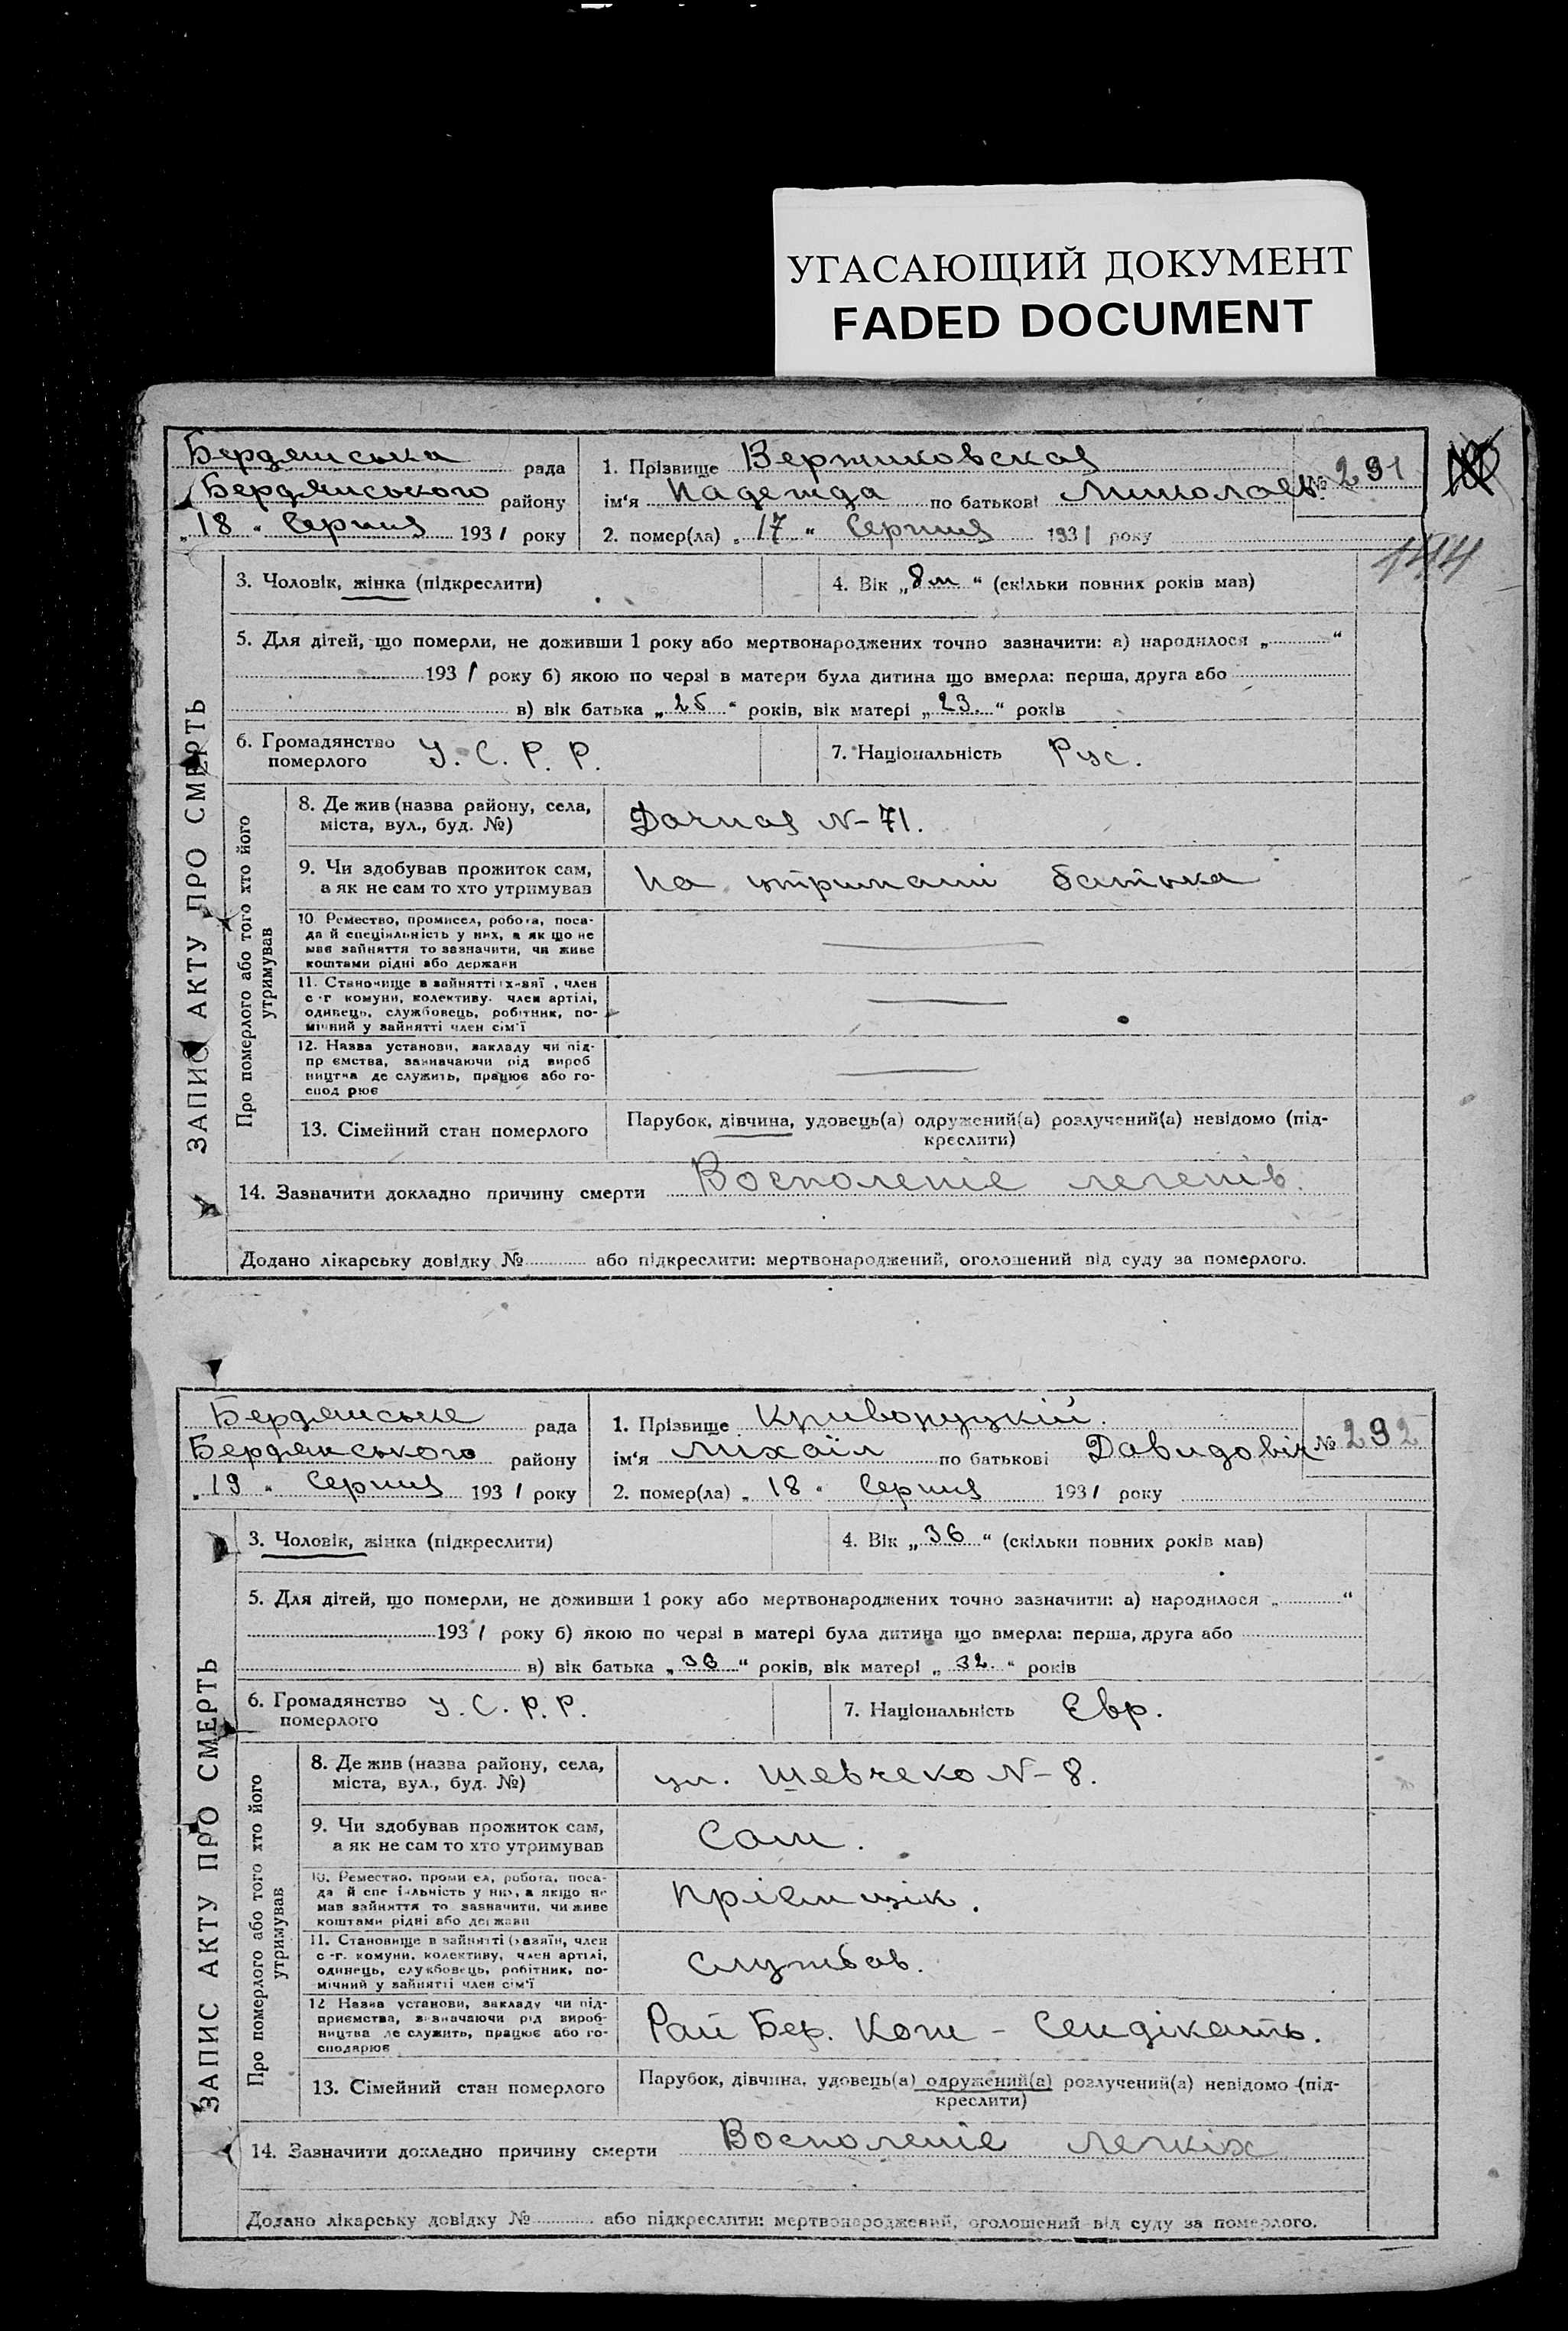 УГАСАЮЩИЙ ДОКУМЕНТ
FADED DOCUMENT
ЗАПИС АКТУ ПРО СМЕРТЬ
Бердянська рада
Бердянського району
„18“ Серпня 1931 року
1. Прізвище Вержиковская
№ 291
ім‘я Надежда по батькові Миколаев.
2. помер(ла) „17“ Серпня 1931 року
144
3. Чоловік, жінка (підкреслити)
4. Вік „8 м“ (скільки повних років мав)
5. Для дітей, що померли, не доживши 1 року або мертвонароджених точно зазначити: а) народилося „ “
1931 року б) якою по черзі в матери була дитина що вмерла: перша, друга або
в) вік батька „25“ років, вік матері „23.“ років
6. Громадянство померлого У. С. Р. Р.
7. Національність Рус.
Про померлого або того хто його утримував
8. Де жив (назва району, села,
міста, вул., буд. №)
Дачная N-71.
9. Чи здобував прожиток сам,
а як не сам то хто утримував
На утримані батька
10. Ремество, промисел, робота, поса-
да й спеціяльність у них, а як що не
мав зайняття то зазначити, чи живе
коштами рідні або держави
11. Становище в зайнятті хазяї , член
с-г комуни, колективу, член артілі,
одинець, службовець, робітник, по-
мічний у зайнятті член сім'ї
12. Назва установи, закладу чи під-
пр ємства, зазначаючи рід вироб
ництва де служить, працює або го-
спод рює
13. Сімейний стан померлого
Парубок, дівчина, удовець(а) одружений(а) розлучений(а) невідомо (під-
креслити)
14. Зазначити докладно причину смерти Восполеніе легенів.
Додано лікарську довідку № або підкреслити: мертвонароджений, оголошений від суду за померлого.
ЗАПИС АКТУ ПРО СМЕРТЬ
Бердянське рада
Бердянського району
„19“ Серпня 1931 року
1. Прізвище Криворуцкій.
№ 292
ім‘я Міхаіл по батькові Давидовіч
2. помер(ла) „18“ Серпня 1931 року
3. Чоловік, жінка (підкреслити)
4. Вік „36“ (скільки повних років мав)
5. Для дітей, що померли, не доживши 1 року або мертвонароджених точно зазначити: а) народилося „ “
1931 року б) якою по черзі в матері була дитина що вмерла: перша, друга або
в) вік батька „36“ років, вік матері „32“ років
6. Громадянство померлого У. С. Р. Р.
7. Національність Євр.
Про померлого або того хто його утримував
8. Де жив (назва району, села,
міста, вул., буд. №)
ул. Шевчеко N-8.
9. Чи здобував прожиток сам,
а як не сам то хто утримував
Сам.
10. Ремество, проми ел, робота, поса-
да й спе іяльність у них, а якщо не
мав зайняття то зазначити, чи живе
коштами рідні або держави
Пріемщік.
11. Становище в зайнятті (хазяїн, член
с-г. комуни, колективу, член артілі,
одинець, службовець, робітник, по-
мічний у зайнятті член сім'ї
Службов.
12 Назва установи, закладу чи під-
приємства, зазначаючи рід вироб-
ництва де служить, працює або го-
сподарює
Рай Бер. Кож - Сендікать.
13. Сімейний стан померлого
Парубок, дівчина, удовець(а) одружений(а) розлучений(а) невідомо (під-
креслити)
14. Зазначити докладно причину смерти Восполеніе легкіх
Додано лікарську довідку № або підкреслити: мертвонароджений, оголошений від суду за померлого.